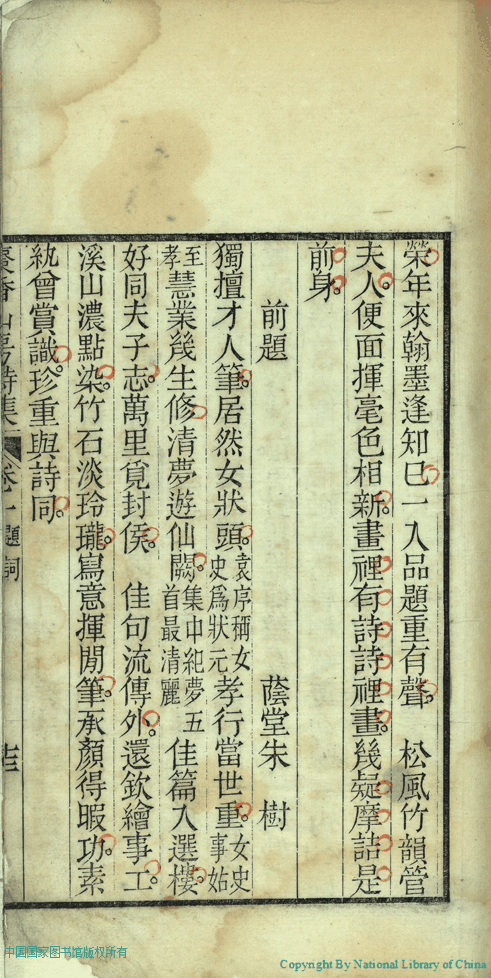 榮年來翰墨逢知己一入品題重有聲　松風竹韻管
夫人便面揮毫色相新畫裡有詩詩裡畫幾疑摩詰是
前身
前題　蔭堂朱　樹
獨擅才人筆居然女狀頭袁序稱女史爲狀元孝行當世重女史事姑
至孝慧業幾生修清夢遊仙闕集中紀夢五首最清麗佳篇入選樓
好同夫子志萬里覓封侯　佳句流傳外還欽繪事工
溪山濃點染竹石淡玲瓏寫意揮閒筆承顏得暇功素
紈曾賞識珍重與詩同
山房詩集　卷一題詞
中国国家图书馆版权所有
Copyright By National Library of China